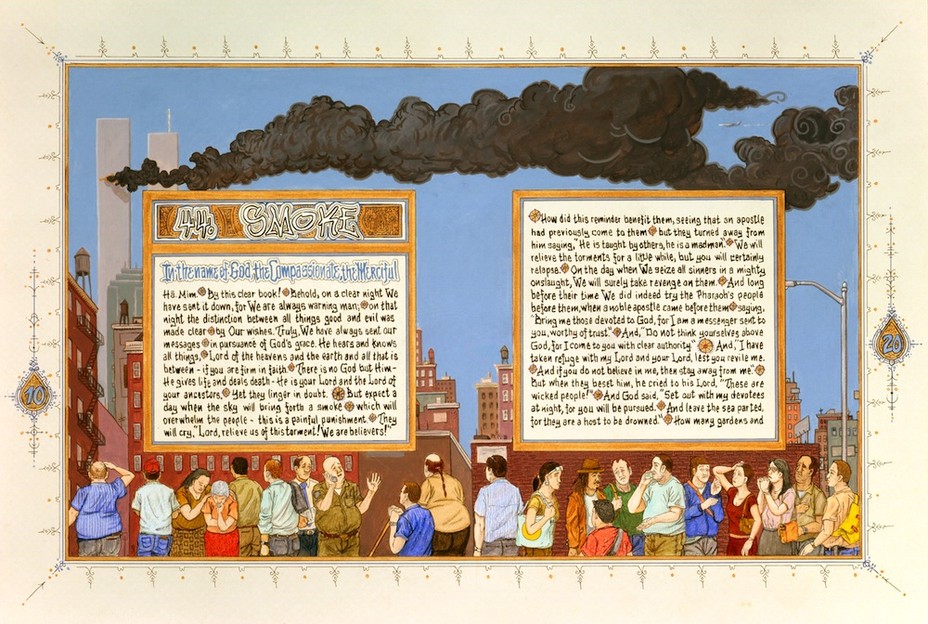 44. SMOKE
In the name of God, the Compassionate, the Merciful
Ha. Mim. By this clear book! Behold, on a clear night We
have sent it down, for We are always warning man; on that
night the distinction between all things good and evil was
made clear by Our wishes. Truly, We have always sent our
messages in pursuance of God's grace. He hears and knows
all things, Lord of the heavens and the earth and all that is
between - if you are firm in faith. There is no God but Him-
He gives life and deals death - He is your Lord and the Lord of
your ancestors. Yet they linger in doubt. But expect a
day when the sky will bring forth a smoke which will
overwhelm the people - this is a painful punishment. They
will cry, "Lord, relieve us of this torment! We are believers!"
How did this reminder benefit them, seeing that an apostle
had previously come to them but they turned away from
him saying, "He is taught by others, he is a madman." We will
relieve the torments for a little while, but you will certainly
relapse. On the day when We seize all sinners in a mighty
onslaught, We will surely take revenge on them. And long
before their time We did indeed try the Pharaoh's people
before them, when a noble apostle came before them saying,
"Bring me those devoted to God, for I am a messenger sent to
you, worthy of trust." And, "Do not think yourselves above
God, for I come to you with clear authority." And, "I have
taken refuge with my Lord and your Lord, lest you revile me.
And if you do not believe in me, then stay away from me."
But when they beset him, he cried to his Lord, "These are
wicked people!" And God said, "Set out with my devotees
at night, for you will be pursued. And leave the sea parted,
for they are a host to be drowned." How many gardens and
10
20